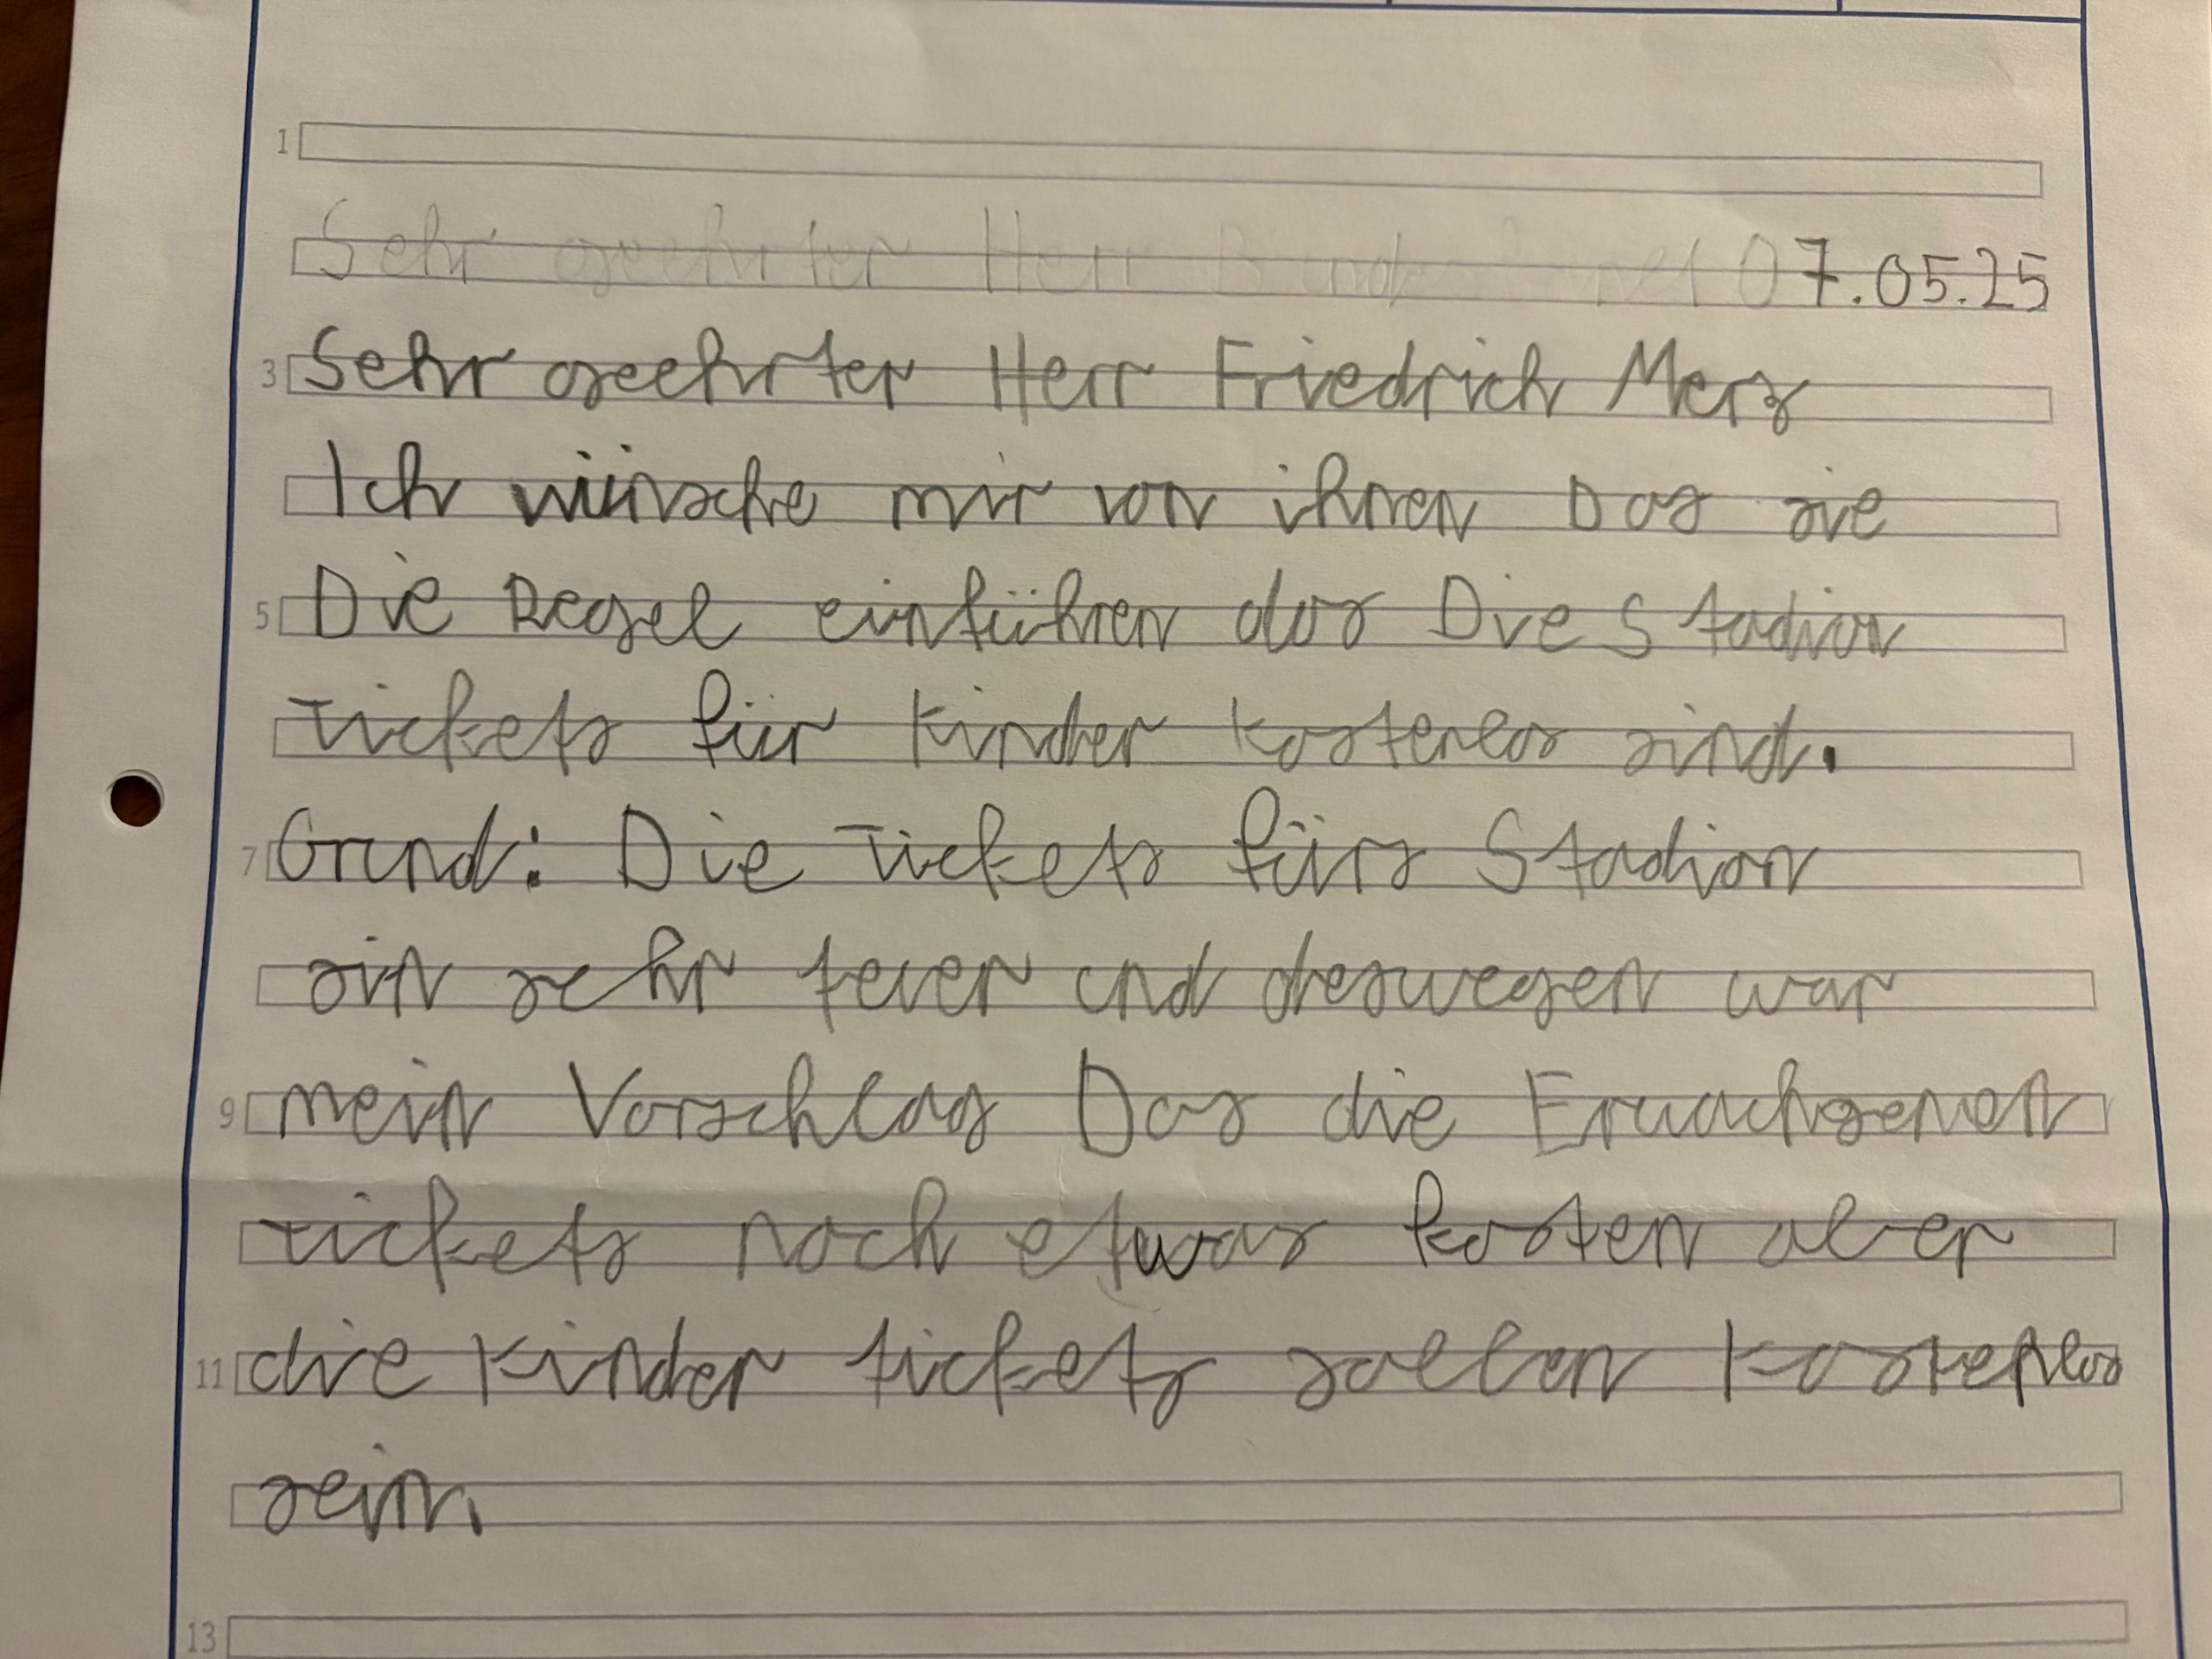 1
Sehr geehrter Herr 07.05.25
3 Sehr geehrter Herr Friedrich Merz
Ich wünsche mir von ihnen Das sie
5 Die Regel einführen das Die Stadion
Tickets für Kinder kostenlos sind.
7 Grund: Die Tickets fürs Stadion
sin sehr teuer und deswegen war
9 mein Vorschlag Das die Erwachsenen
tickets noch etwas kosten aber
11 die Kinder tickets sollen kostenlos
sein.
13